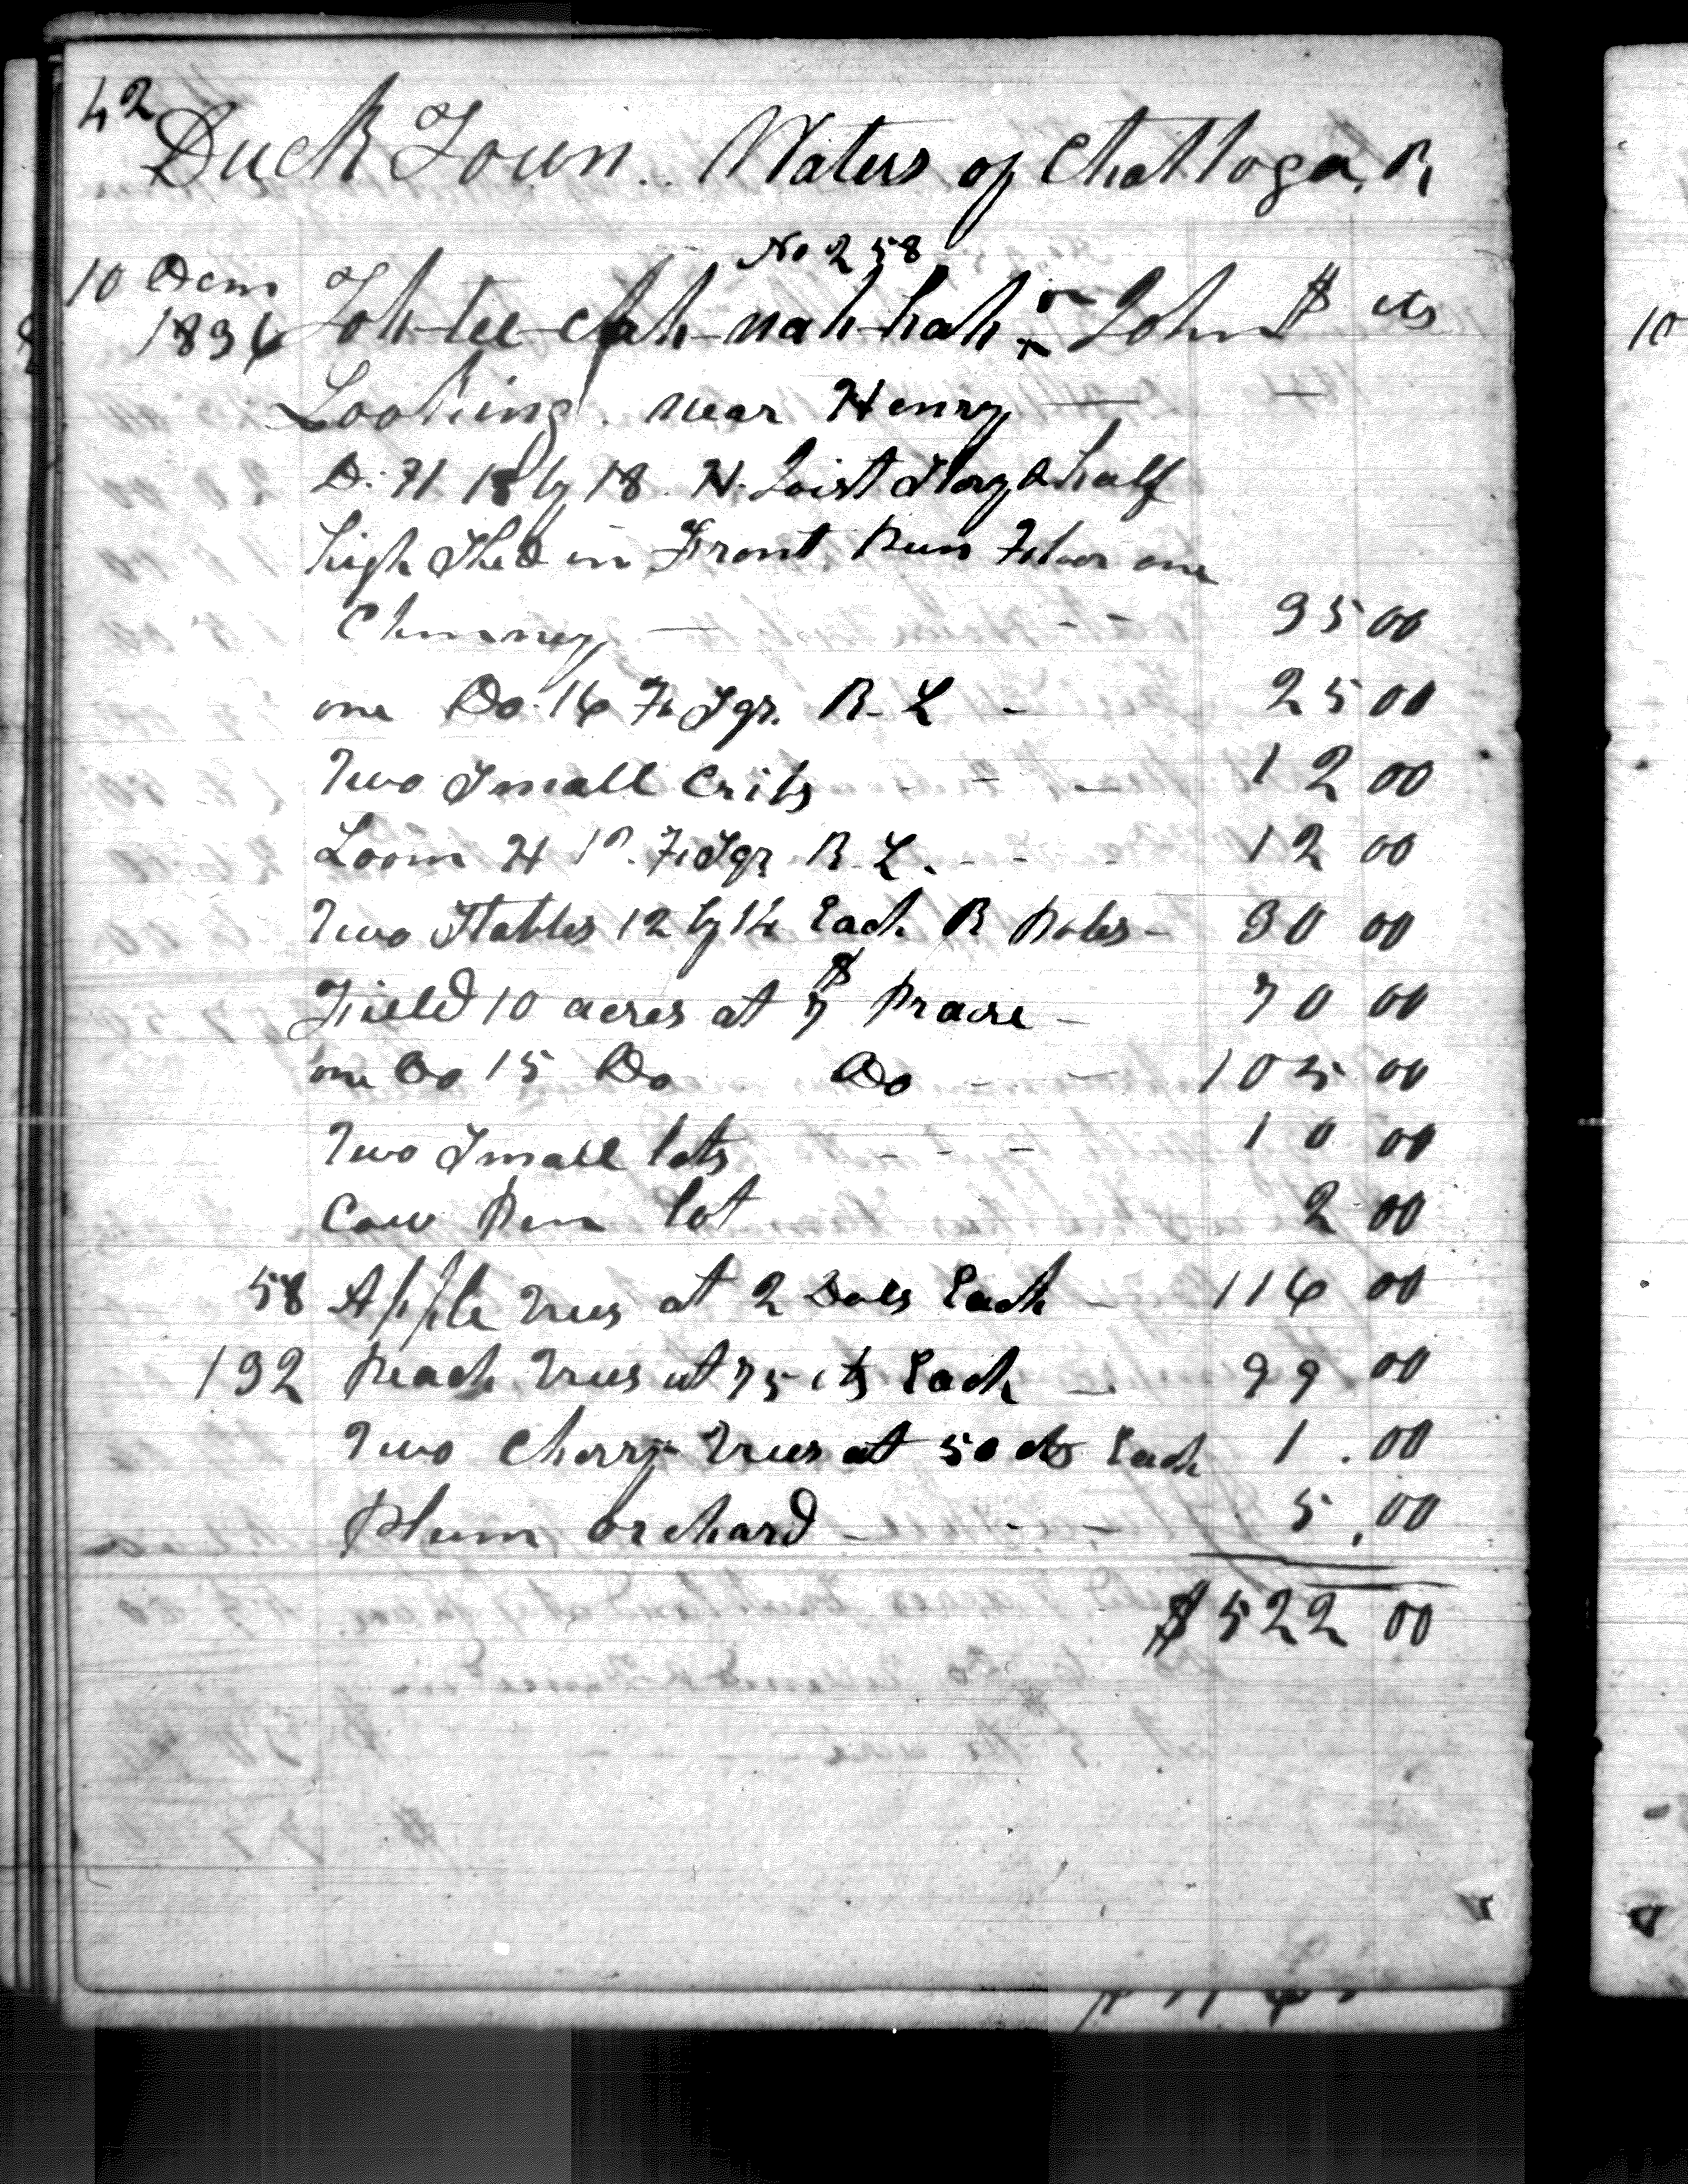 42
Duck Town.. Waters of Chattoga R
No 258
10 Decm Toh-tee-chah-nah-hah or John $ cts
1836
Looking near Henry —
D. H. 18 by 18. H. Joist Story & half
high Shed in Front Pun Floor one
Chimney — 35 00
one Do. 16 Ft Sqr. R. L - 25 00
Two Small Cribs - - 12 00
Loom H Ft Sqr R. L. - - - 12 00
Two Stables 12 by 14 Each R Poles - 30 00
Field 10 acres at $7 Pr acre - 70 00
one Do 15 Do Do - - 105 00
Two Small lots - - - 10 00
Cow Pen lot 2 00
58 Apple Trees at 2 Dols Each - 116 00
132 Peach Trees at 75 cts Each - 99 00
Two Cherry Trees at 50 cts Each 1.00
Plum orchard - - - 5.00
$522 00
10